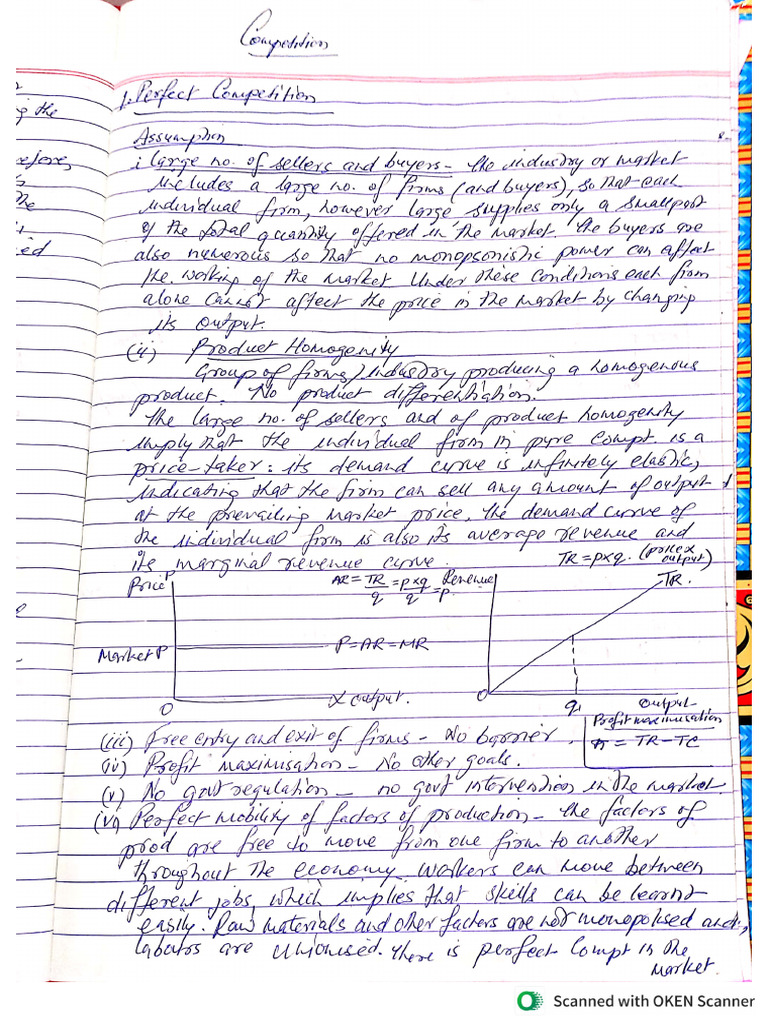 Competition
1. Perfect Competition
Assumption
i large no. of sellers and buyers - The industry or market
includes a large no. of firms (and buyers), so that each
individual firm, however large supplies only a small part
of the total quantity offered in the market. The buyers are
also numerous so that no monopsonistic power can affect
the working of the market Under these conditions each firm
alone cannot affect the price in the market by changing
its output.
(ii) Product Homogenity
Group of firms / industry producing a homogenous
product. No product differentiation.
The large no. of sellers and of product homogenity
imply that the individual firm in pure compt. is a
price-taker: its demand curve is infinitely elastic,
indicating that the firm can sell any amount of output
at the prevailing market price, the demand curve of
the individual firm is also its average revenue and
its marginal revenue curve. TR = p×q. (price x
output)
Price P AR = TR/q = p×q/q = P Revenue TR.
Market P P=AR=MR
O X output. O q1 output
Profit maximisation
π = TR - TC
(iii) Free entry and exit of firms - No barrier.
(iv) Profit maximisation - No other goals.
(v) No govt regulation - no govt intervention in the market.
(vi) Perfect mobility of factors of production - the factors of
prod are free to move from one firm to another
throughout the economy. Workers can move between
different jobs, which implies that skills can be learnt
easily. Raw materials and other factors are not monopolised and
labours are unionised. There is perfect compt in the
market.
ng the
The
ied
Scanned with OKEN Scanner